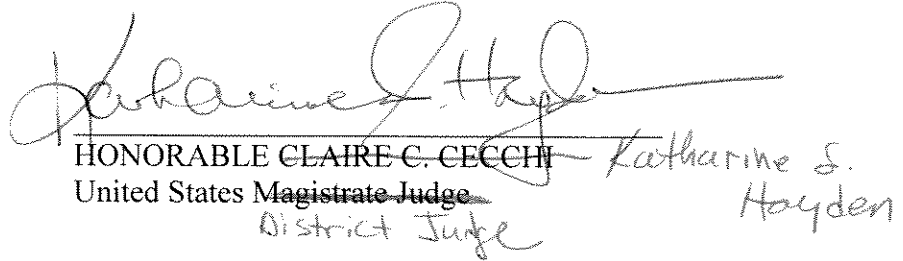 Katharine S. Hayden
HONORABLE CLAIRE C. CECCHI Katharine S.
Hayden
United States Magistrate Judge
District Judge